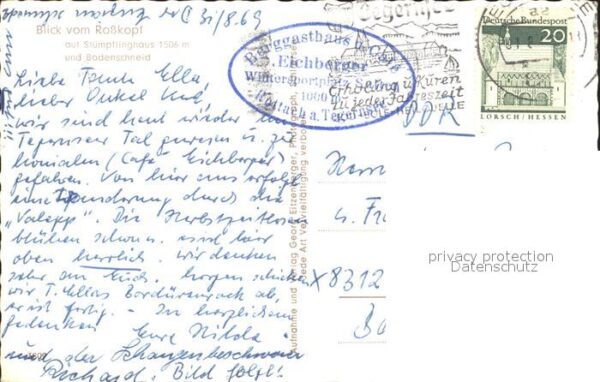 31/8.69
Blick vom Roßkopf
auf Stümpflinghaus 1506 m
und Bodenschneid
Liebe Tante Ella
lieber Onkel
wir sind heut wieder im
Tegernseer Tal gewesen u. zu
(Café Eichberger)
gefahren. Von hier aus erfolgte
eine Wanderung durch die
"Valepp". Die Herbstzeitlosen
blühen schon u. es ist hier
oben herrlich. Wir denken
sehr an Euch. Morgen schicken
wir T. Ellas Bordürenrock ab,
er ist fertig. - In herzlichem
Gedenken
Eure Hilda
und der
Richard. Bild folgt!
Aufnahme und Verlag Georg Eitzenberger,
Jede Art Vervielfältigung verboten
Berggasthaus u. Café
Eichberger
Wintersportplatz Sutten
1000 m
Rottach a. Tegernsee
Tegernsee
Erholung u. Kuren
zu jeder Jahreszeit
DEUTSCHE BUNDESPOST
20
LORSCH/HESSEN
DDR
Herrn
u. Fr
X 8312
privacy protection
Datenschutz